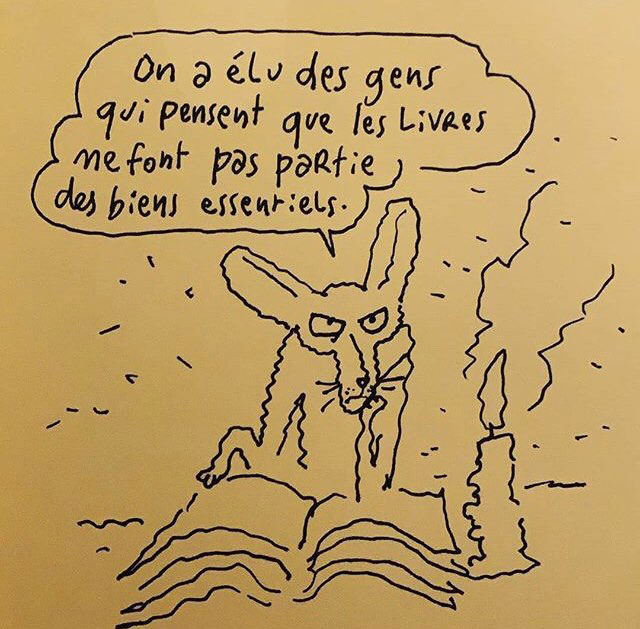 On a élu des gens
qui pensent que les LiVRes
ne font pas partie
des biens essentiels.